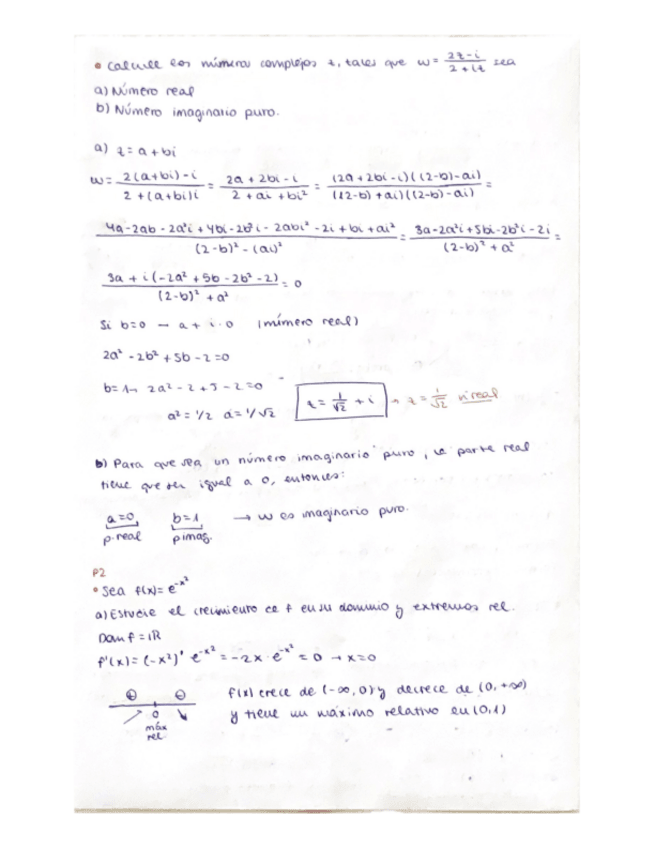 • Calcule los números complejos z, tales que w = (2z - i)/(2 + iz) sea
a) Número real
b) Número imaginario puro.
a) z = a + bi
w = (2(a+bi) - i)/(2 + (a+bi)i) = (2a + 2bi - i)/(2 + ai + bi²) = ((2a + 2bi - i)((2-b) - ai))/(((2-b) + ai)((2-b) - ai)) =
(4a - 2ab - 2a²i + 4bi - 2b²i - 2abi² - 2i + bi + ai²)/((2-b)² - (ai)²) = (3a - 2a²i + 5bi - 2b²i - 2i)/((2-b)² + a²) =
(3a + i(-2a² + 5b - 2b² - 2))/((2-b)² + a²) = 0
Si b=0 → a + i·0 (número real)
2a² - 2b² + 5b - 2 = 0
b = 1 → 2a² - 2 + 5 - 2 = 0
a² = 1/2 a = 1/√2
z = 1/√2 + i → z = 1/√2 nºreal
b) Para que sea un número imaginario puro, la parte real
tiene que ser igual a 0, entonces:
a=0 b=1 → w es imaginario puro.
p.real p.imag.
P2
• Sea f(x) = e^-x²
a) Estudie el crecimiento de f en su dominio y extremos rel.
Dom f = ℝ
f'(x) = (-x²)' e^-x² = -2x · e^-x² = 0 → x=0
⊕ ⊖ f(x) crece de (-∞, 0) y decrece de (0, +∞)
0 y tiene un máximo relativo en (0,1)
máx
rel.